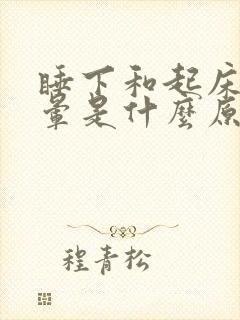 睡下和起床
暈是什麼原
程青松